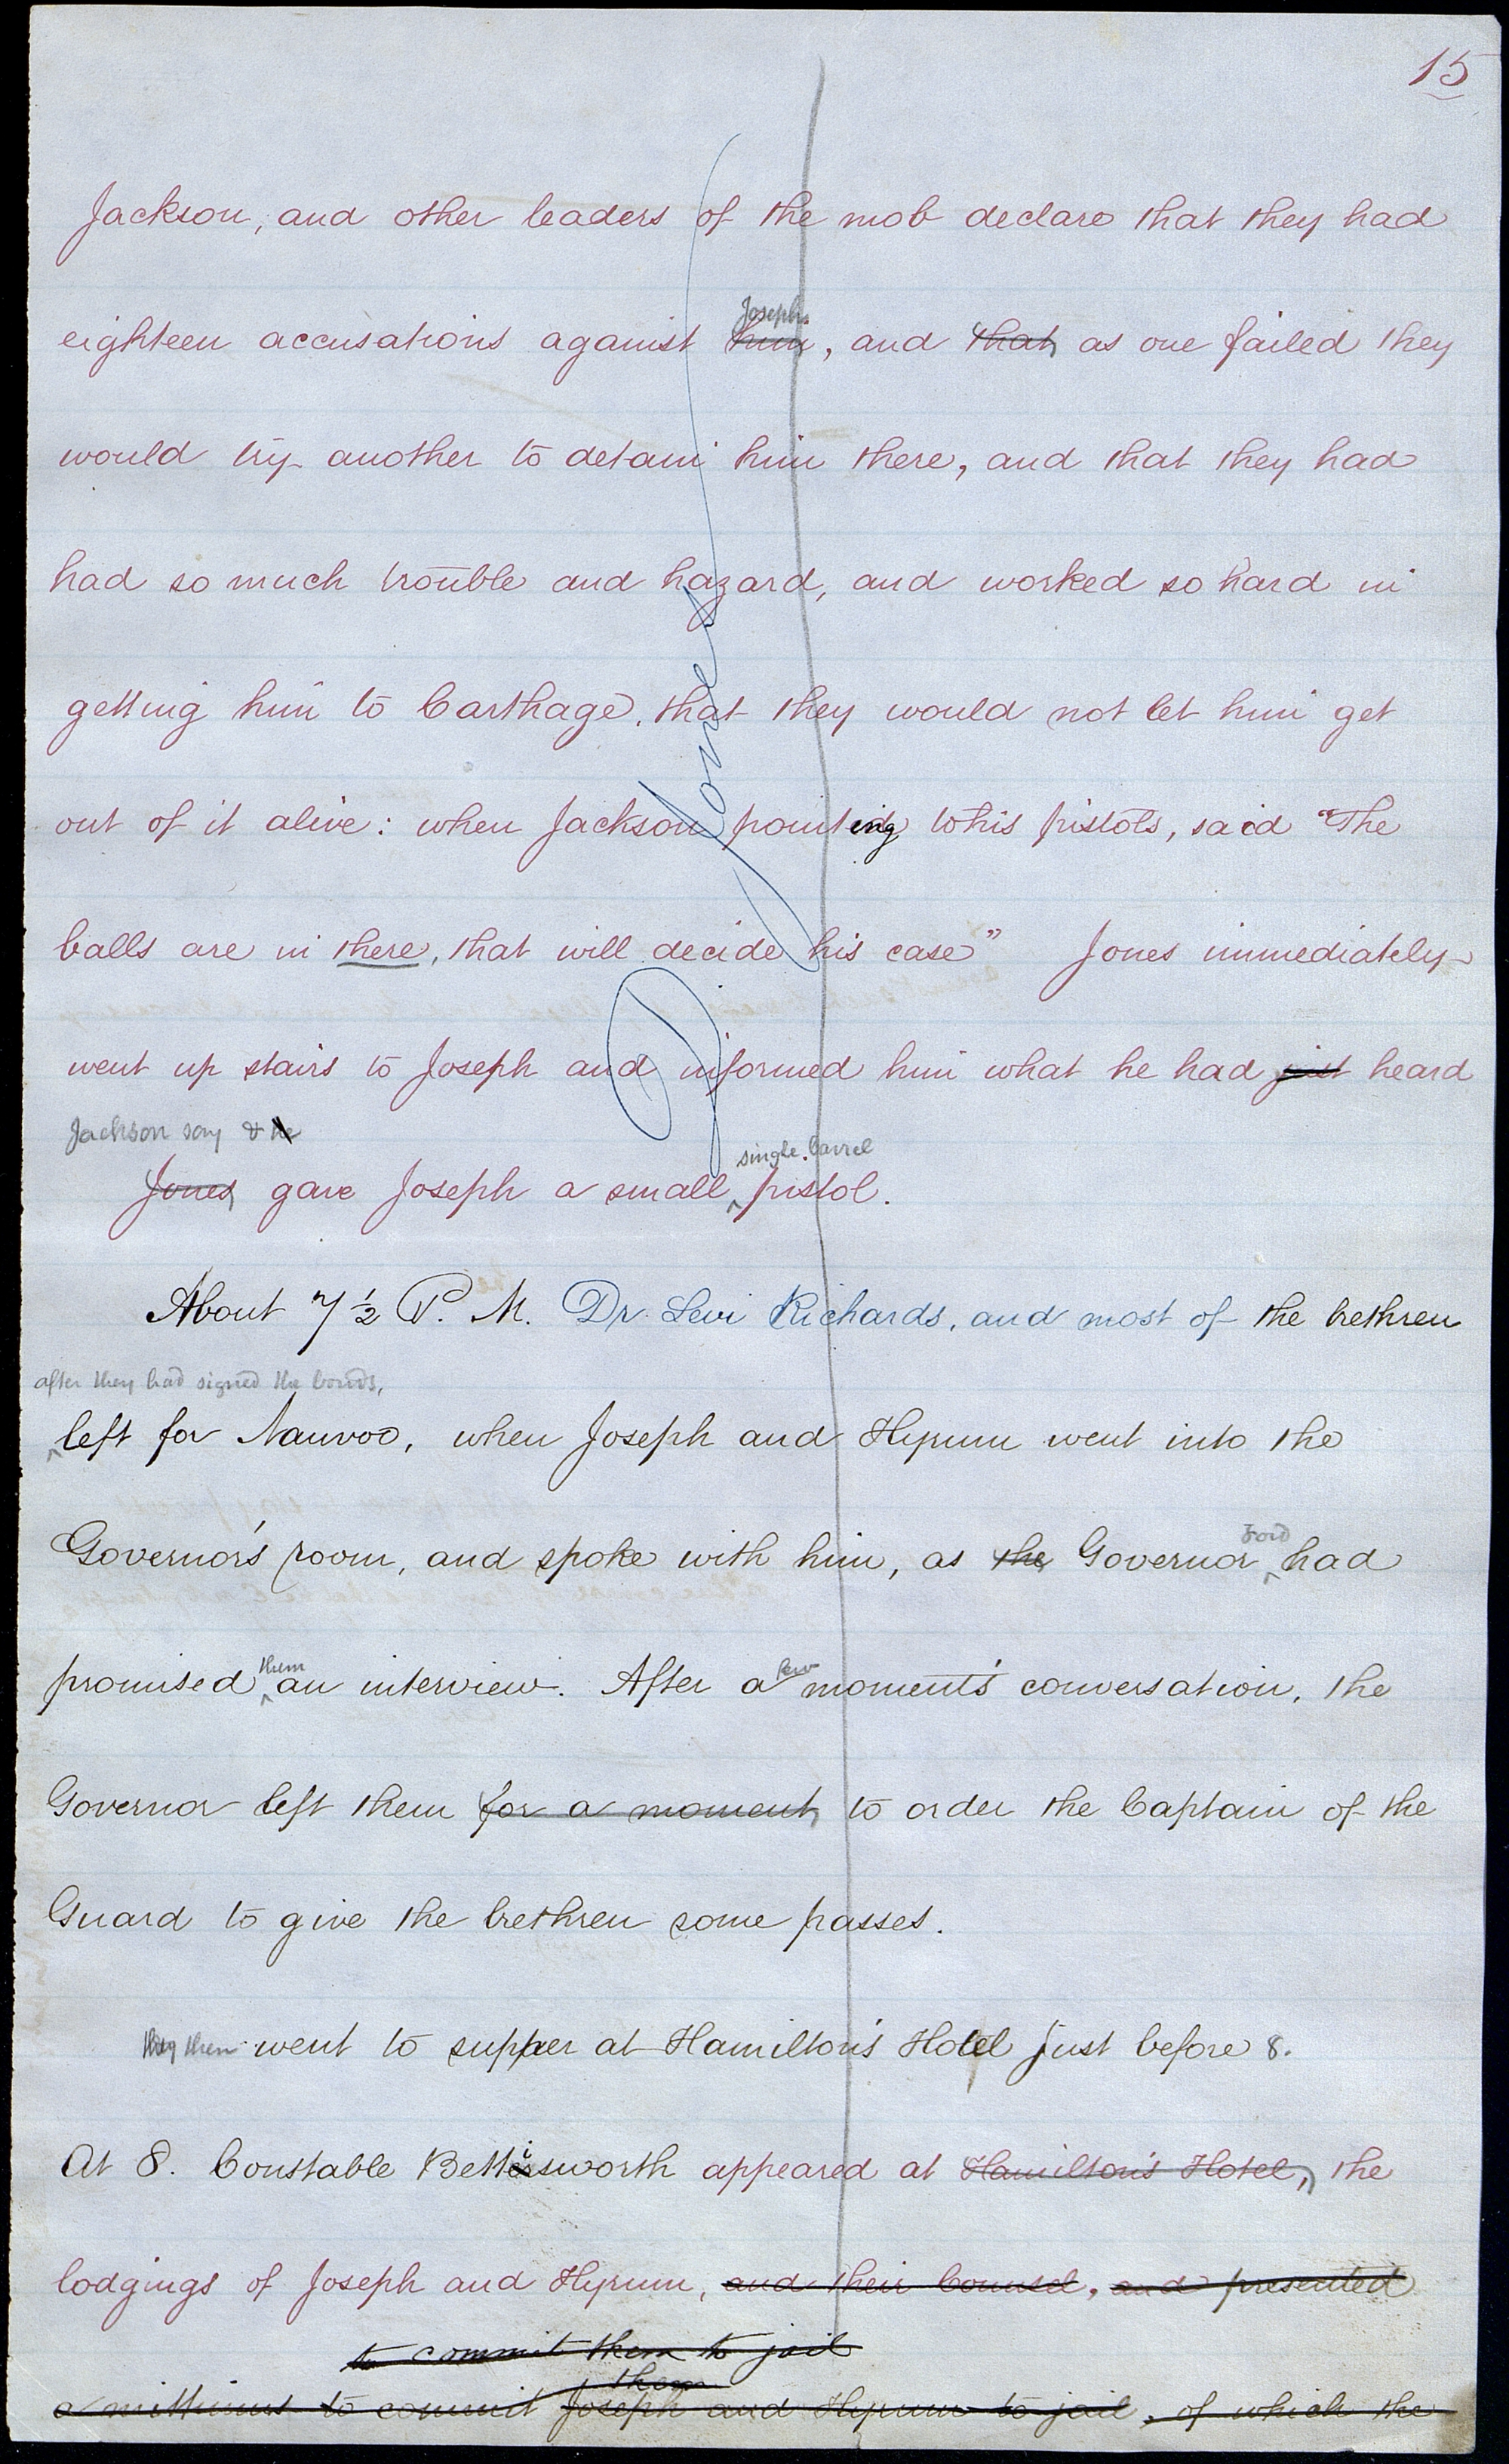 15
Jackson, and other leaders of the mob declare that they had
Joseph
eighteen accusations against him, and that as one failed they
would try another to detain him there, and that they had
had so much trouble and hazard, and worked so hard in
getting him to Carthage, that they would not let him get
out of it alive: when Jackson pointing to his pistols, said "The
balls are in there, that will decide his case" Jones immediately
went up stairs to Joseph and informed him what he had just heard
Jackson say & he
single barrel
Jones gave Joseph a small ^ pistol.
D Jones
About 7 1/2 P. M. Dr. Levi Richards, and most of the brethren
after they had signed the bonds,
^ left for Nauvoo, when Joseph and Hyrum went into the
Ford
Governor's room, and spoke with him, as the Governor ^ had
them few
promised ^ an interview. After a moment's conversation, the
Governor left them for a moment, to order the Captain of the
Guard to give the brethren some passes.
they then went to supper at Hamilton's Hotel just before 8.
At 8. Constable Bettisworth appeared at Hamilton's Hotel, the
lodgings of Joseph and Hyrum, and their Counsel, and presented
to commit them to jail
them
a mittimus to commit Joseph and Hyrum to jail, of which the